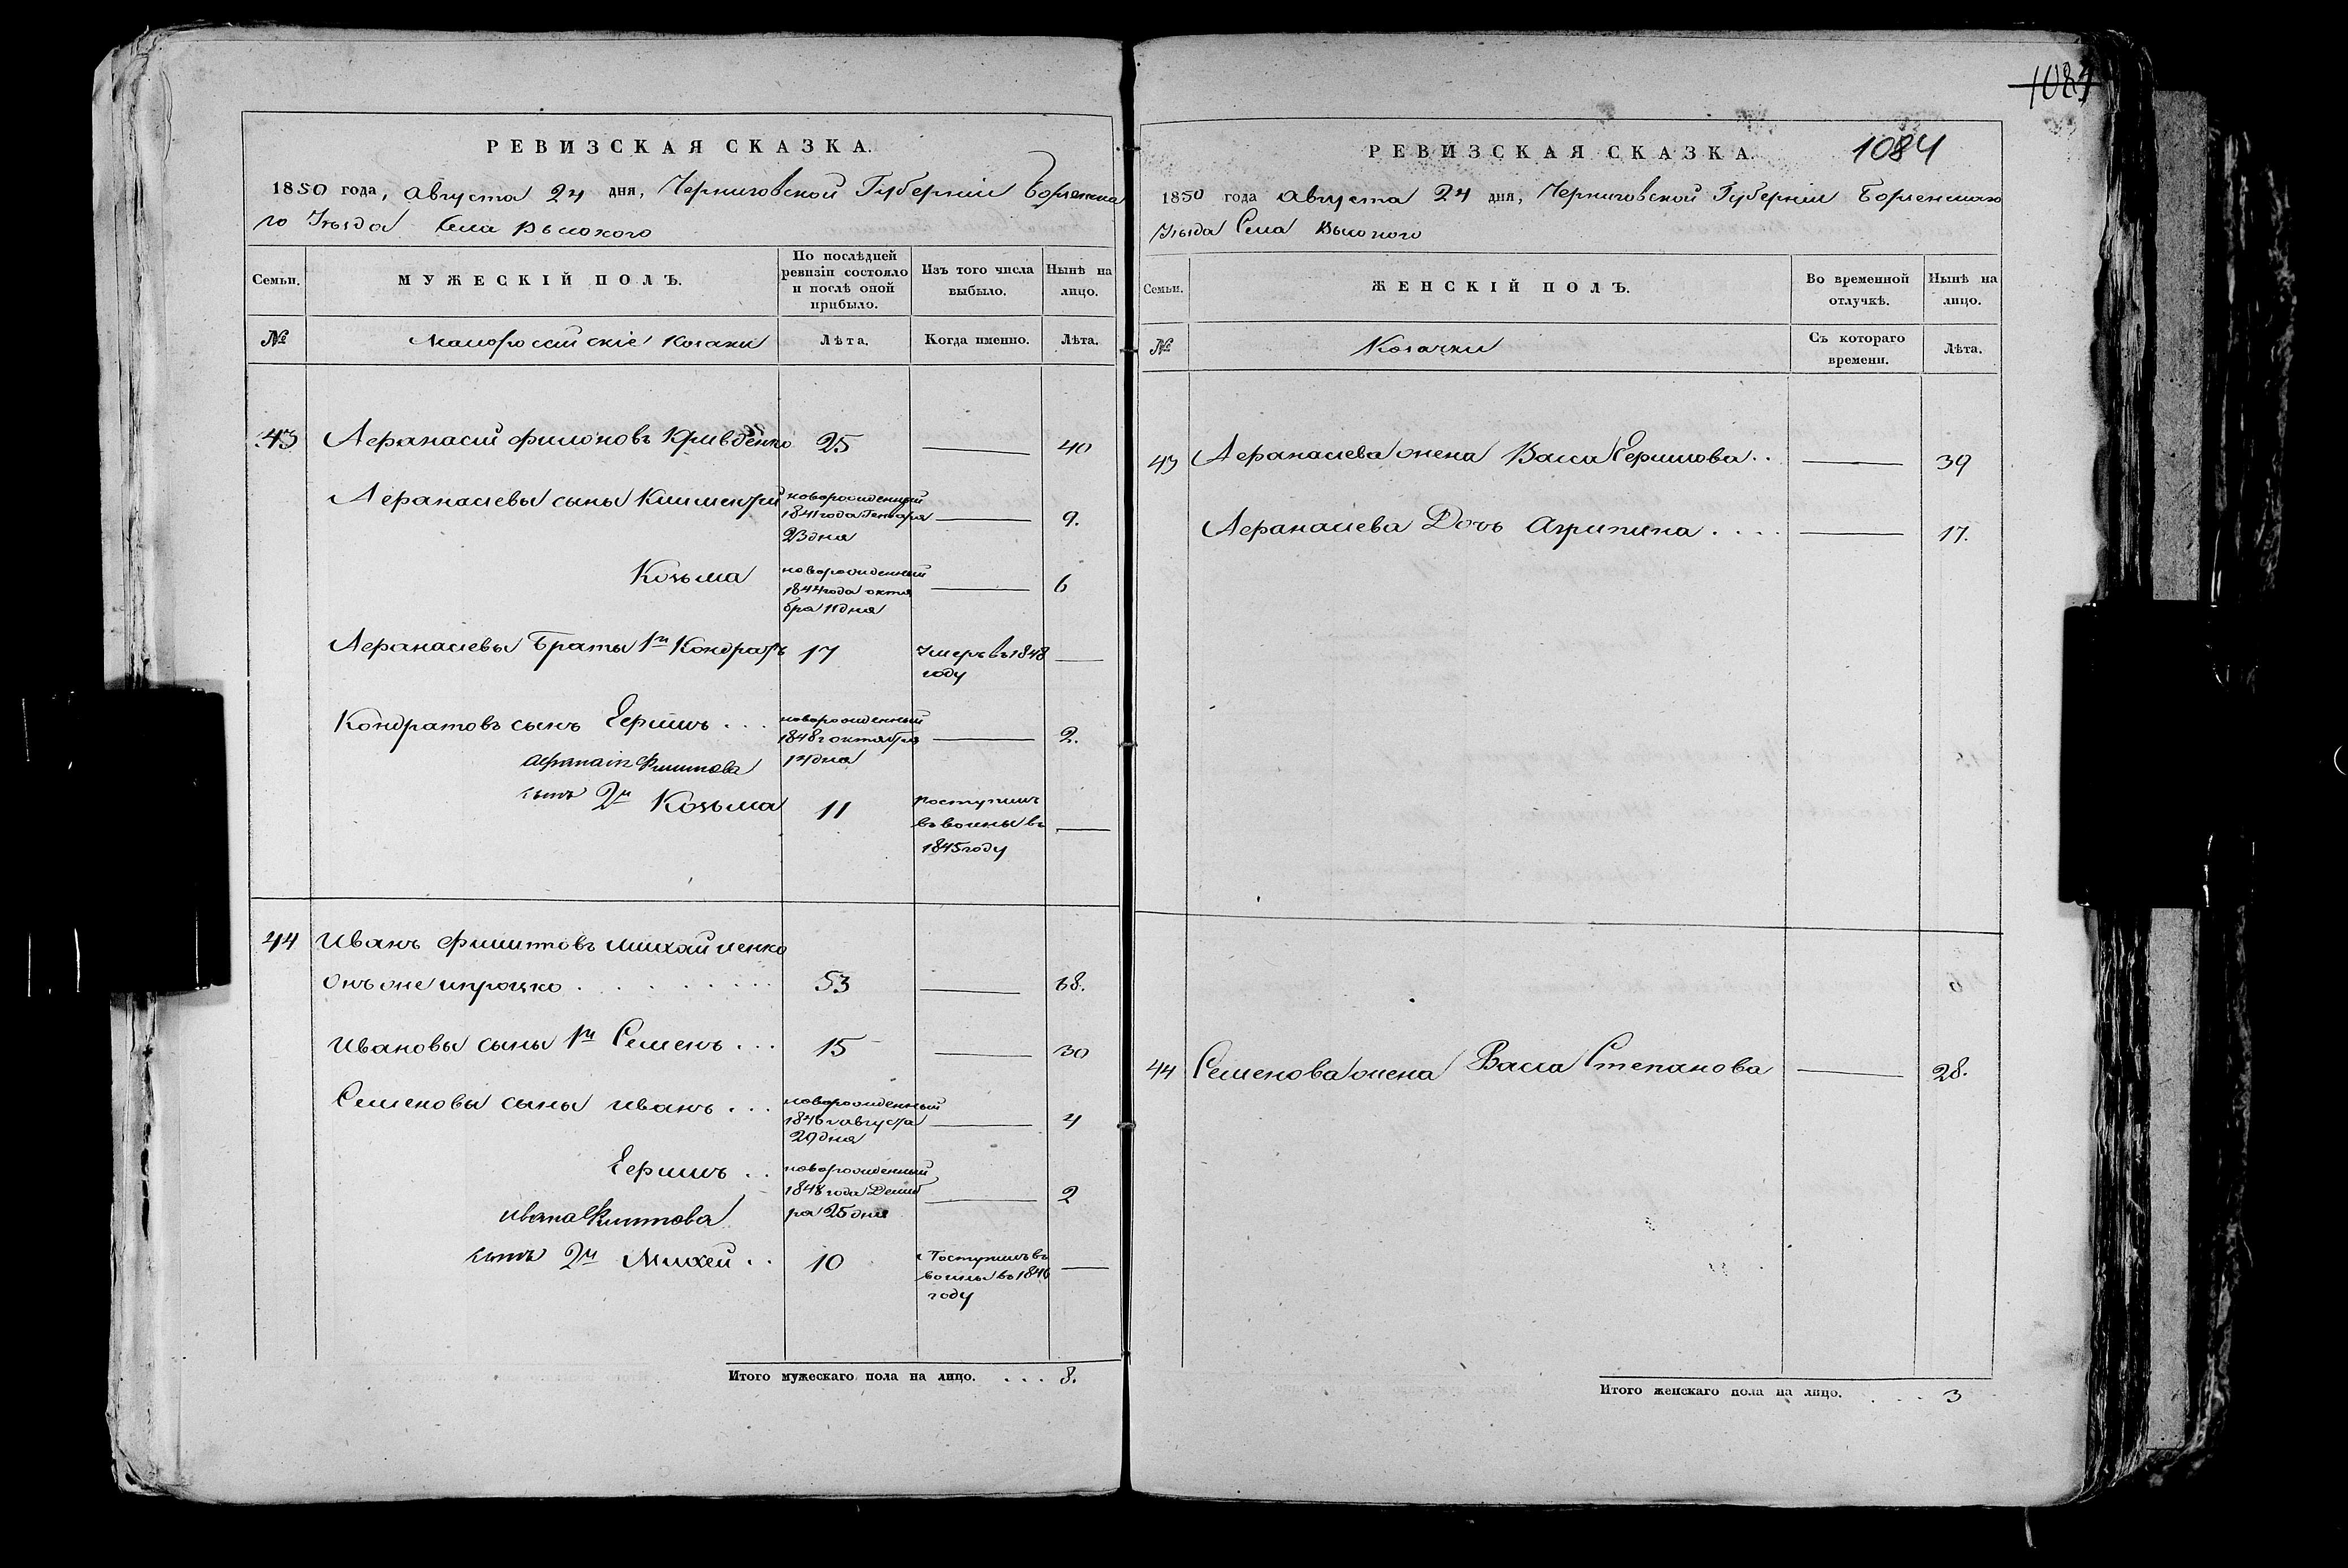 РЕВИЗСКАЯ СКАЗКА.
1850 года, Августа 24 дня, Черниговской Губерніи Борзенска
го Уѣзда Села Высокого
Семьи.
МУЖЕСКІЙ ПОЛЪ.
По послѣдней
ревизіи состояло
и послѣ оной
прибыло.
Изъ того числа
выбыло.
Нынѣ на
лицо.
№
Малороссійскіе Козаки
Лѣта.
Когда именно.
Лѣта.
43 Афанасій Филоновъ 25 40
Афанасіевы сыны новорожденный
1841 года Генваря 9.
23 дня
Козьма новорожденный
1844 года октя 6
бра 11 дня
Афанасіевы Браты 1й Кондратъ 17 Умеръ въ 1848
году
Кондратовъ сынъ Ефимъ . . . новорожденный
1848 г октября 2.
дня
сынъ 2й Козьма 11 поступилъ
въ воины въ
1845 году
44 Иванъ Филиповъ Михайленко
онъ же . . . 53 68.
Ивановы сыны 1й Семенъ . . . 15 30
Семеновы сыны Иванъ . . . новорожденный
1846 г августа 4
29 дня
Ефимъ . . новорожденный
1848 года Декаб 2
ра 25 дня
Ивана Филипова
сынъ 2й Михей . . 10 Поступилъ въ
воины въ 1846
году
Итого мужескаго пола на лицо. . . . 8.
1084
1084
РЕВИЗСКАЯ СКАЗКА.
1850 года Августа 24 дня, Черниговской Губерніи Борзенскаго
Уѣзда Села Высокого
Семьи.
ЖЕНСКІЙ ПОЛЪ.
Во временной
отлучкѣ.
Нынѣ на
лицо.
№
Козачки
Съ котораго
времени.
Лѣта.
43 Афанасіева жена Васса Ефимова . . 39
Афанасіева Дочь Агрипина . . . . 17.
44 Семенова жена Васса Степанова 28.
Итого женскаго пола на лицо. . . . 3